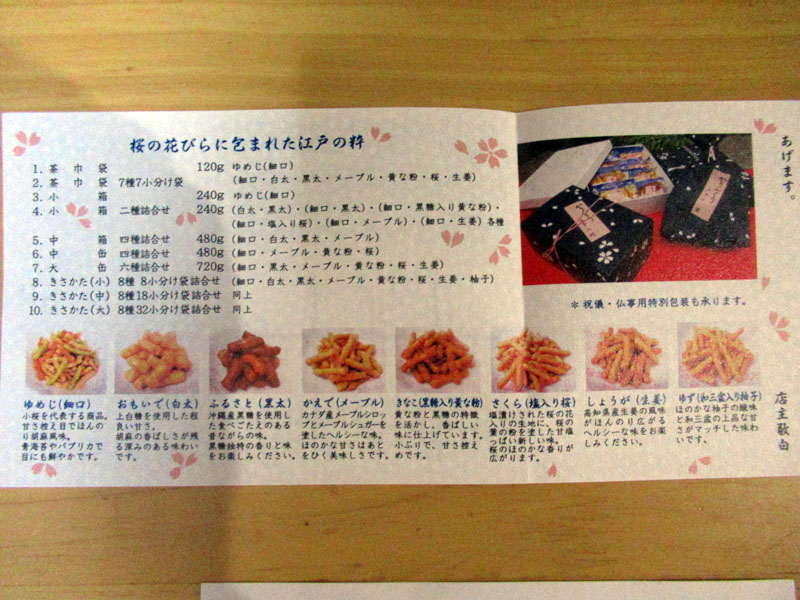 桜の花びらに包まれた江戸の粋
1. 茶巾袋 120g ゆめじ(細口)
2. 茶巾袋 7種7小分け袋 (細口・白太・黒太・メープル・黄な粉・桜・生姜)
3. 小箱 240g ゆめじ(細口)
4. 小箱 二種詰合せ 240g (白太・黒太)・(細口・黒太)・(細口・黒糖入り黄な粉)・
(細口・塩入り桜)・(細口・メープル)・(細口・生姜) 各種
5. 中箱 四種詰合せ 480g (細口・白太・黒太・メープル)
6. 中缶 四種詰合せ 480g (細口・メープル・黄な粉・桜)
7. 大缶 六種詰合せ 720g (細口・黒太・メープル・黄な粉・桜・生姜)
8. きさかた(小) 8種 8小分け袋詰合せ (細口・白太・黒太・メープル・黄な粉・桜・生姜・柚子)
9. きさかた(中) 8種18小分け袋詰合せ 同上
10. きさかた(大) 8種32小分け袋詰合せ 同上
＊祝儀・仏事用特別包装も承ります。
あげます。
店主敬白
ゆめじ(細口)
小桜を代表する商品。
甘さ控え目でほんの
り胡麻風味。
青海苔やパプリカで
目にも鮮やかです。
おもいで(白太)
上白糖を使用した程
良い甘さ。
胡麻の香ばしさが残
る深みのある味わい
です。
ふるさと(黒太)
沖縄産黒糖を使用し
た食べごたえのある
昔ながらの味。
黒糖独特の香りと味
をお楽しみください。
かえで(メープル)
カナダ産メープルシロッ
プとメープルシュガーを
塗したヘルシーな味。
ほのかな甘さはあと
をひく美味しさです。
きなこ(黒糖入り黄な粉)
黄な粉と黒糖の特徴
を活かし、香ばしい
味に仕上げています。
小ぶりで、甘さ控え
めです。
さくら(塩入り桜)
塩漬けされた桜の花
入りの生地に、桜の
葉の粉を塗した甘塩
っぱい新しい味。
桜のほのかな香りが
広がります。
しょうが(生姜)
高知県産生姜の風味
がほんのり広がる
ヘルシーな味をお楽
しみください。
ゆず(和三盆入り柚子)
ほのかな柚子の酸味
と和三盆の上品な甘
さがマッチした味わ
いです。